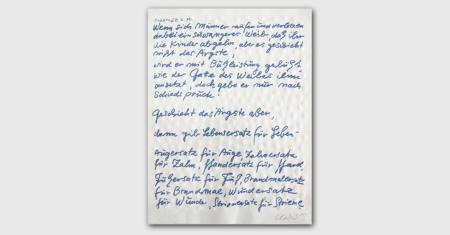 Wenn sich Männer raufen und verletzen
dabei ein schwangeres Weib, daß ihr
die Kinder abgehn, aber es geschieht
nicht das Ärgste,
wird er mit Büßleistung gebüßt
wie der Gatte des Weibes ihm
ansetzt, doch gebe er nur nach
Schiedspruch!
Geschieht das Ärgste aber,
dann gib Lebensersatz für Leben-
Augersatz für Auge, Zahnersatz
für Zahn, Handersatz für Hand,
Fußersatz für Fuß, Brandmalersatz
für Brandmal, Wundersatz
für Wunde, Striemersatz für Strieme